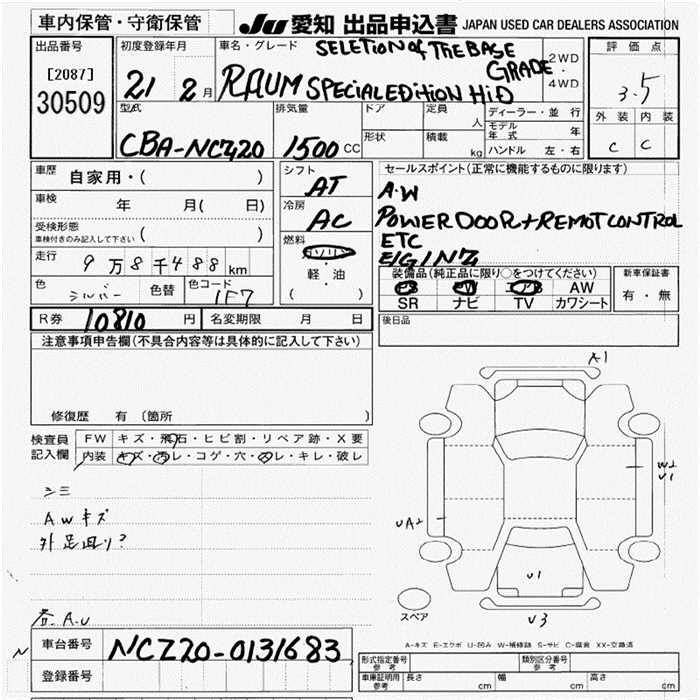 車内保管・守衛保管
JU 愛知 出品申込書 JAPAN USED CAR DEALERS ASSOCIATION
出品番号
[2087]
30509
初度登録年月
21 2月
車名・グレード
SELETION of THE BASE GRADE
RAUM SPECIAL EDITION HiD
2WD
・
4WD
評価点
3.5
外装 内装
C C
型式
CBA-NCZ20
排気量
1500 CC
ドア
定員
人
形状
積載
kg
ディーラー・並行
モデル年式 年
ハンドル 左・右
車歴
自家用・( )
車検
年 月( 日)
受検形態
車検付きのみ記入して下さい ( )
走行
9万8千488km
色
シルバー
色替
色コード
1F7
シフト
AT
冷房
AC
燃料
ガソリン
軽・油
( )
セールスポイント(正常に機能するものに限ります)
A・W
POWER DOOR+REMOT CONTROL
ETC
E/GINZ
装備品(純正品に限り○をつけてください)
PS PW エアB AW
SR ナビ TV カワシート
新車保証書
有・無
R券 10810 円
名変期限 月 日
後日品
注意事項申告欄(不具合内容等は具体的に記入して下さい)
修復歴 有 〔箇所 〕
検査員
記入欄
FW キズ・飛石・ヒビ割・リペア跡・X要
内装 キズ・汚レ・コゲ・穴・スレ・キレ・破レ
シミ
AWキズ
外足回り?
A.U
N
A1
W2
U1
UA2
U1
U3
スペア
A-キズ E-エクボ U-凹み W-補修跡 S-サビ C-腐食 XX-交換済
車台番号
NCZ20-0131683
登録番号
形式指定番号
参考
類別区分番号
参考
車庫証明用
参考
長さ cm
幅 cm
高さ cm